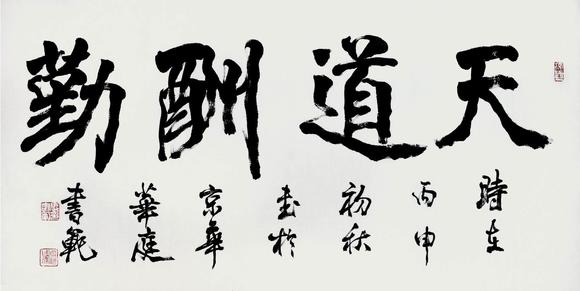 天道酬勤
時在
丙申
初秋
書於
京華
華庭
書範